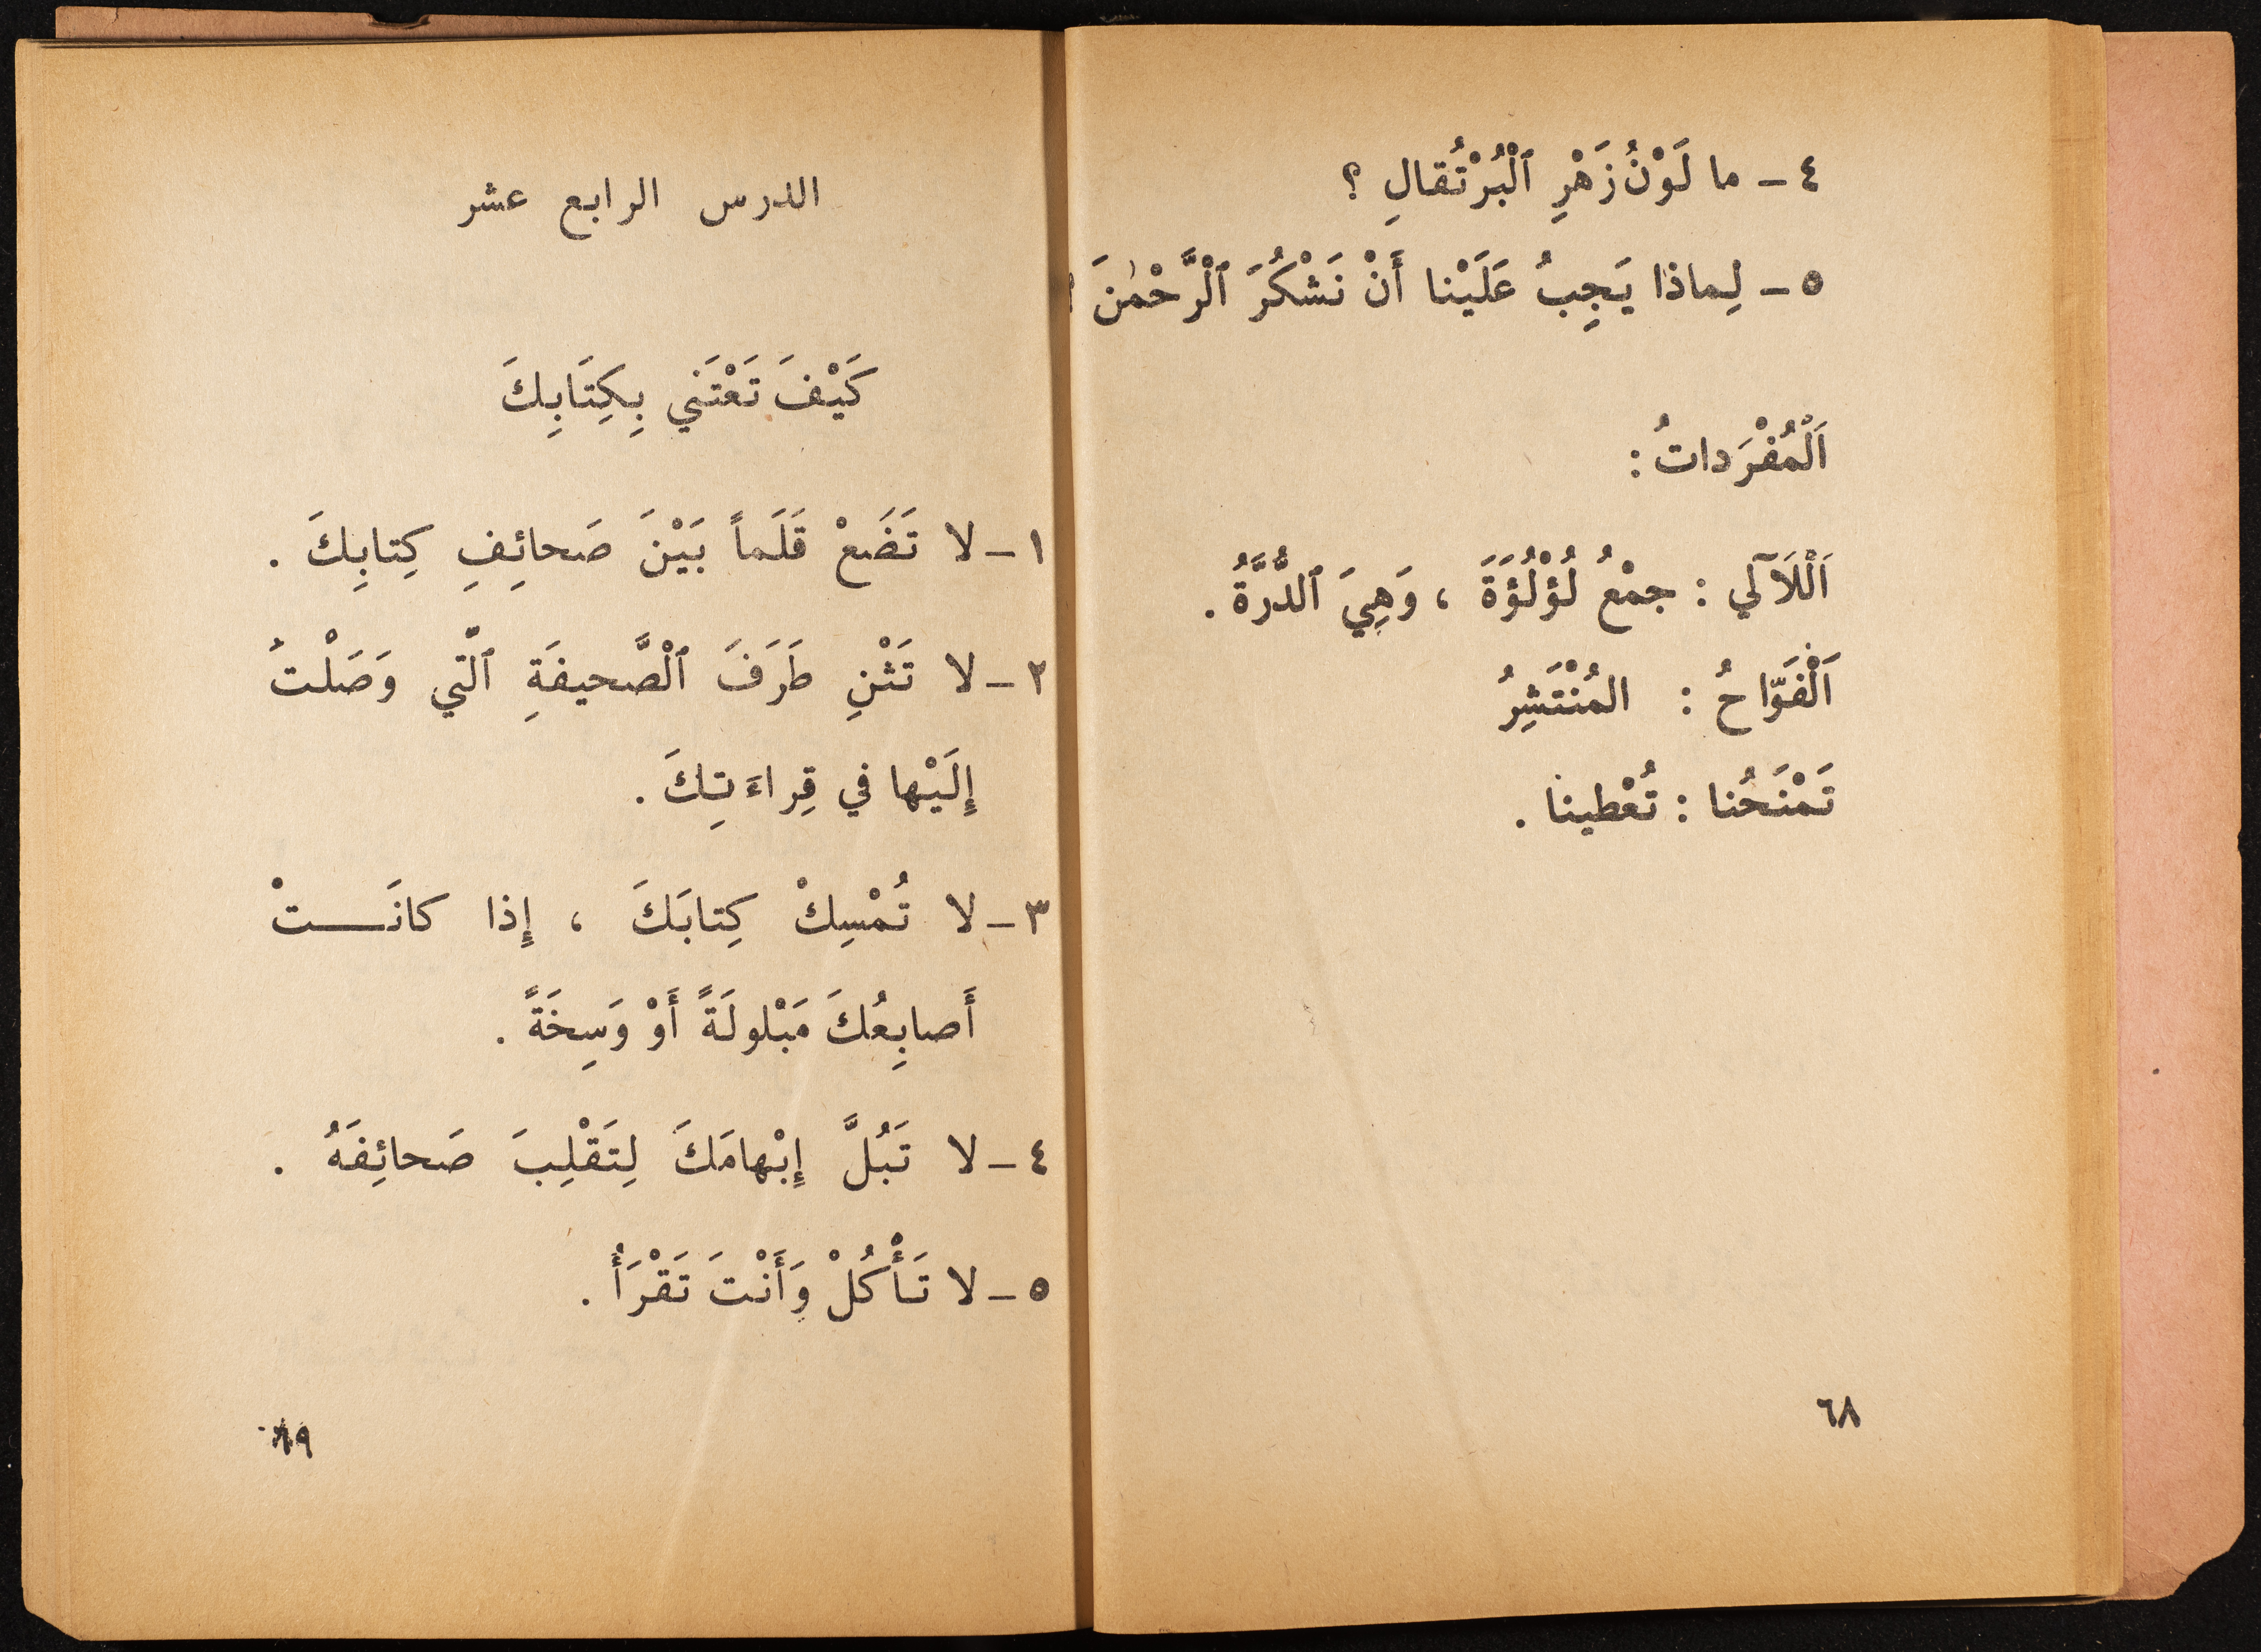 ٤ - ما لَوْنُ زَهْرِ ٱلْبُرْتُقالِ ؟
٥ - لِماذا يَجِبُ عَلَيْنا أَنْ نَشْكُرَ ٱلْرَّحْمٰنَ ؟
اَلْمُفْرَداتُ :
اَلْلَآلي : جمْعُ لُؤْلُؤَةَ ، وَهِيَ ٱلدُّرَّةُ .
اَلْفَوّاحُ : المُنْتَشِرُ
تَمْنَحُنا : تُعْطينا .
٦٨
الدرس الرابع عشر
كَيْفَ تَعْتَني بِكِتَابِكَ
١ - لا تَضَعْ قَلَماً بَيْنَ صَحائِفِ كِتابِكَ .
٢ - لا تَثْنِ طَرَفَ ٱلْصَّحيفَةِ ٱلّتي وَصَلْتَ
إِلَيْها في قِراءَتِكَ .
٣ - لا تُمْسِكْ كِتابَكَ ، إِذا كانَـــتْ
أَصابِعُكَ مَبْلولَةً أَوْ وَسِخَةً .
٤ - لا تَبُلَّ إِبْهامَكَ لِتَقْلِبَ صَحائِفَهُ .
٥ - لا تَأْكُلْ وَأَنْتَ تَقْرَأُ .